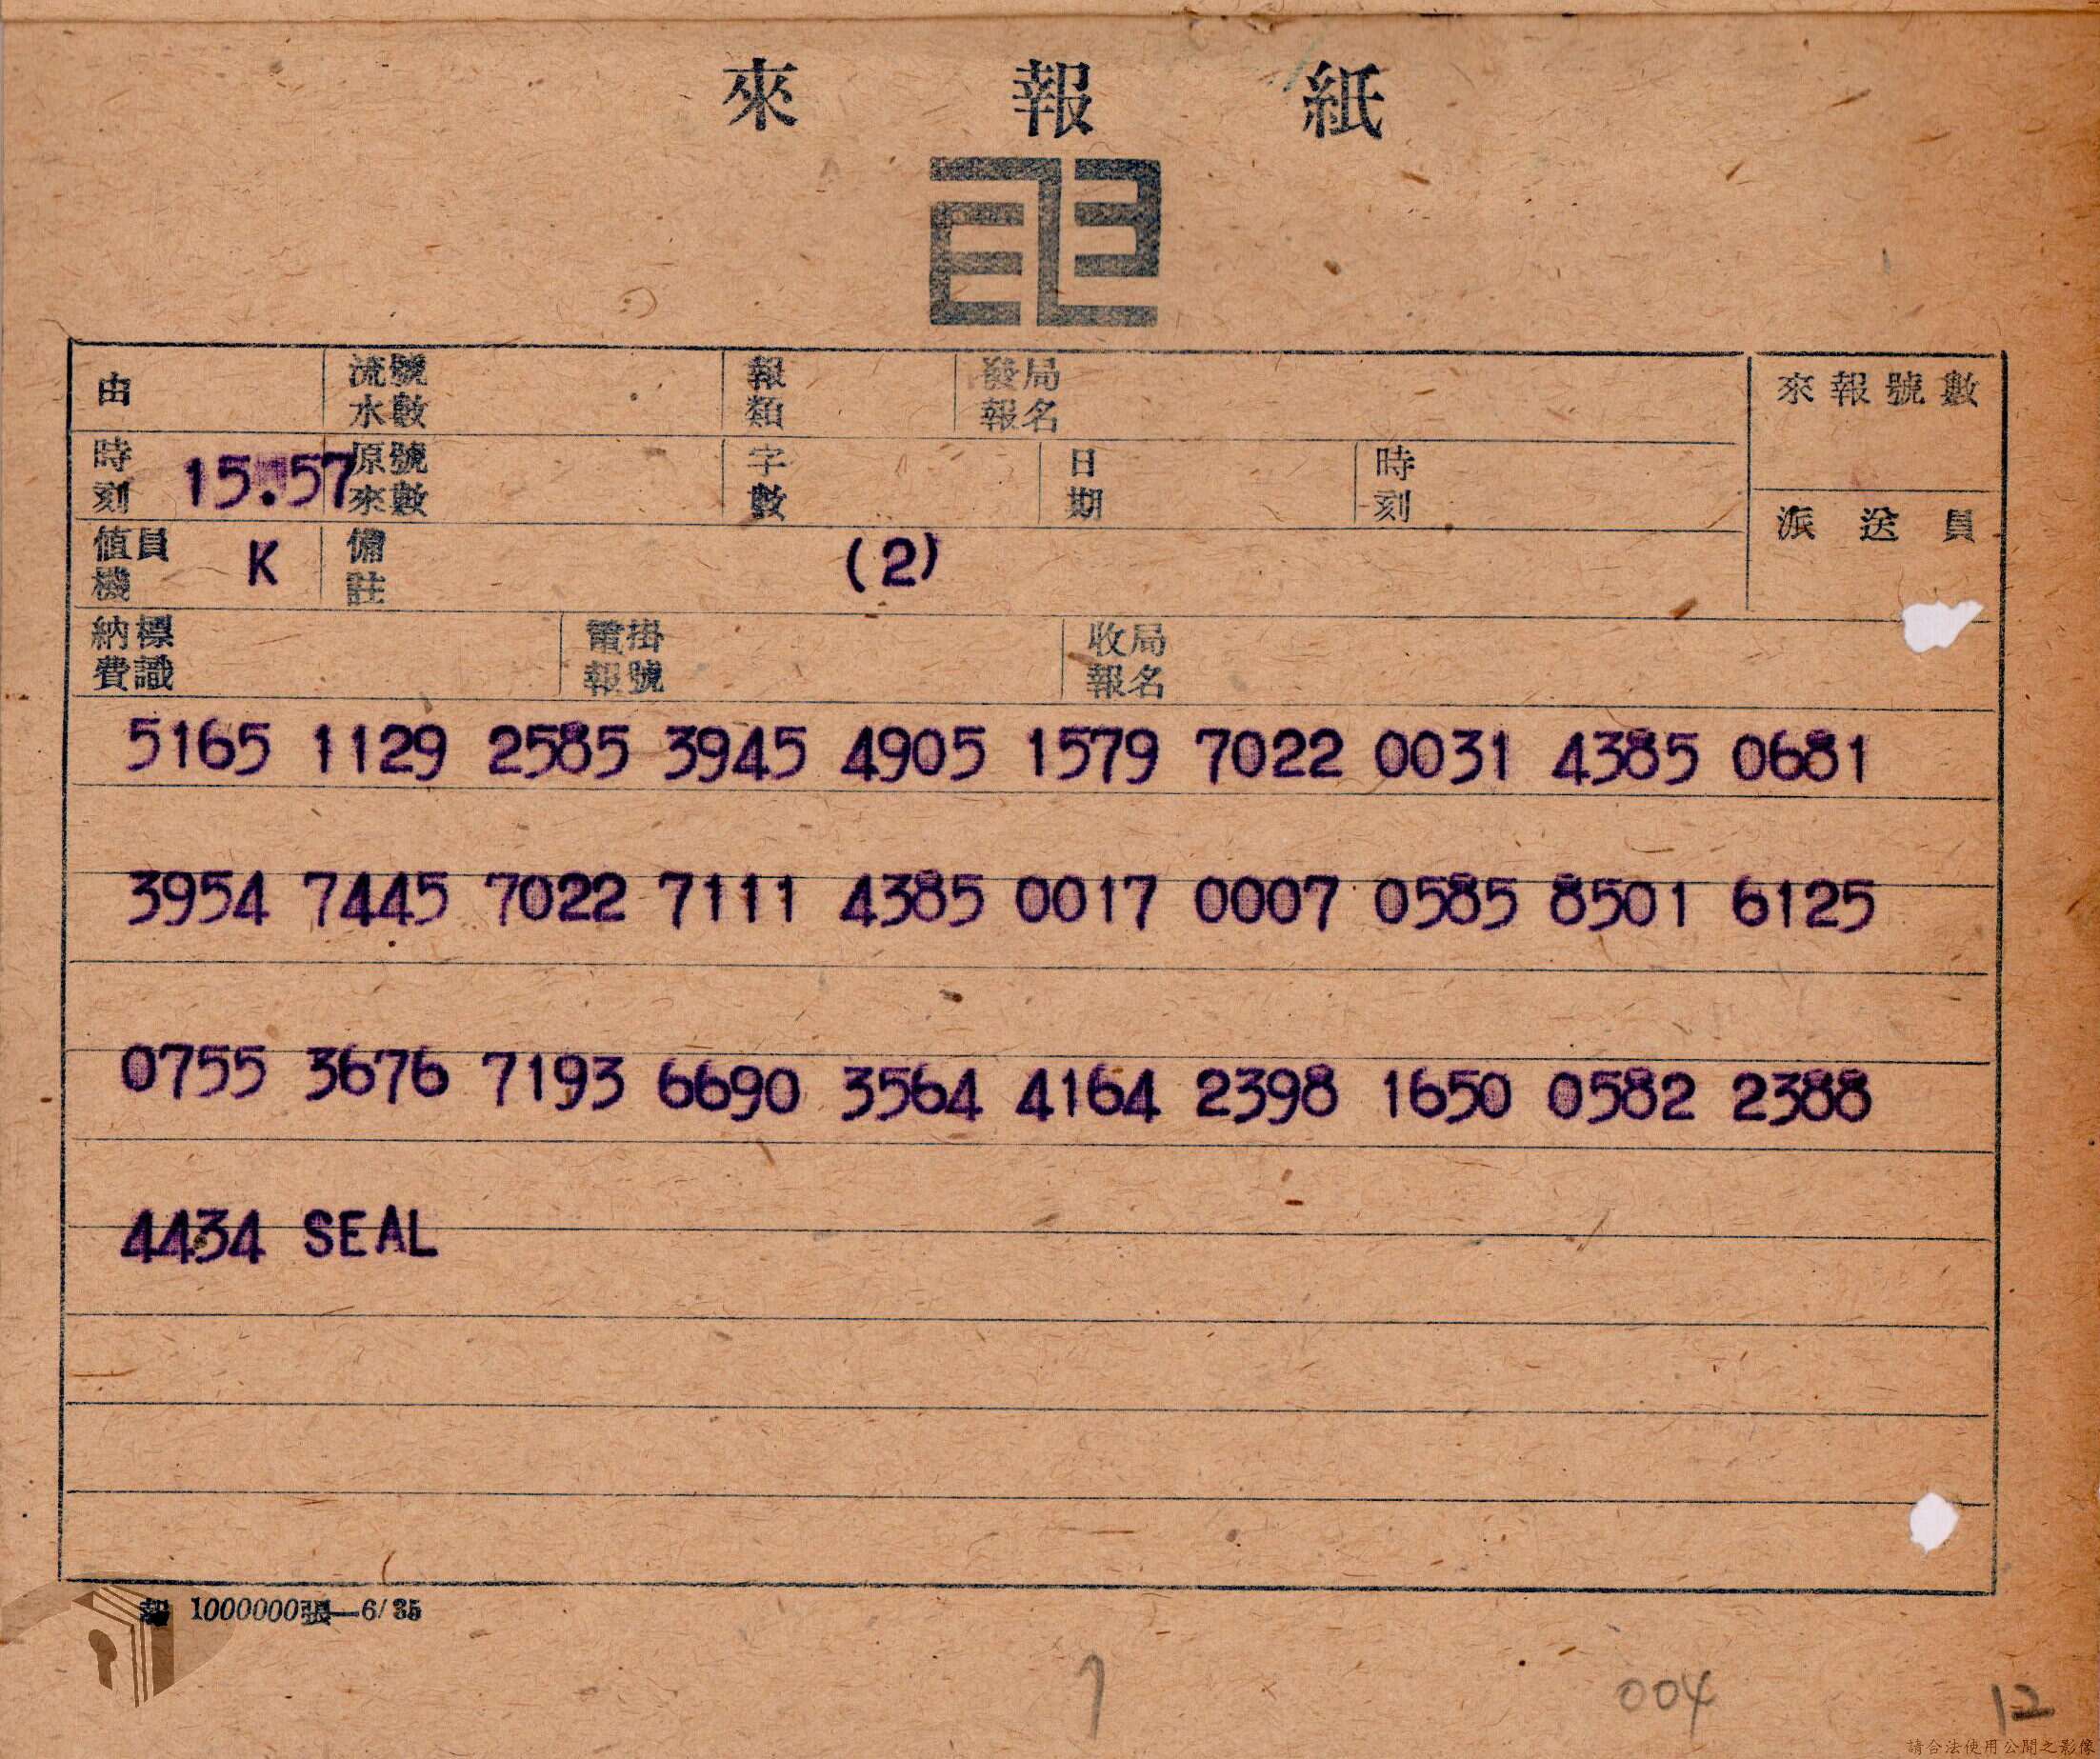 來報紙
由 流水號數 報類 發報局名 來報號數
時刻 15.57 原來號數 字數 日期 時刻
值機員 K 備註 (2) 派送員
納費標識 電報掛號 收報局名
5165 1129 2585 3945 4905 1579 7022 0031 4385 0681
3954 7445 7022 7111 4385 0017 0007 0585 8501 6125
0755 3676 7193 6690 3564 4164 2398 1650 0582 2388
4434 SEAL
1000000張—6/35
004
12
請合法使用公開之影像